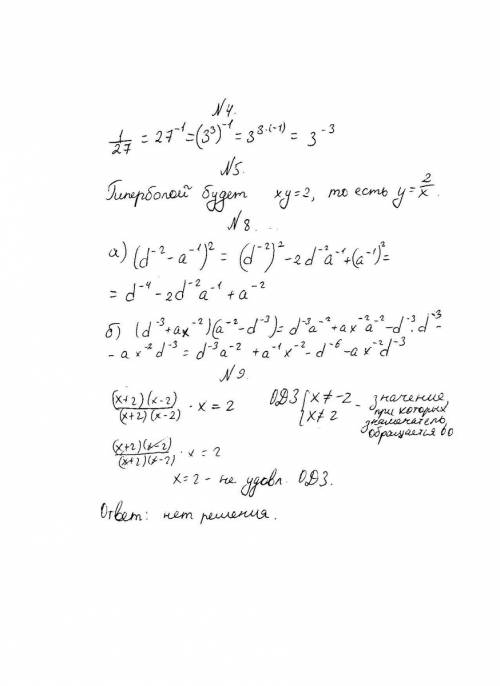 №4.
1/27 = 27⁻¹ = (3³)⁻¹ = 3^(3·(-1)) = 3⁻³
№5.
Гиперболой будет xy=2, то есть y=2/x.
№8.
а) (d⁻² - a⁻¹)² = (d⁻²)² - 2d⁻²a⁻¹ + (a⁻¹)² =
= d⁻⁴ - 2d⁻²a⁻¹ + a⁻²
б) (d⁻³ + ax⁻²)(a⁻² - d⁻³) = d⁻³a⁻² + ax⁻²a⁻² - d⁻³·d⁻³ -
- ax⁻²d⁻³ = d⁻³a⁻² + a⁻¹x⁻² - d⁻⁶ - ax⁻²d⁻³
№9.
(x+2)(x-2)/(x+2)(x-2) · x = 2 ОДЗ { x ≠ -2 x ≠ 2 - значение, при которых знаменатель обращается в 0
(x+2)(x-2)/(x+2)(x-2) · x = 2
x = 2 - не удовл. ОДЗ.
Ответ: нет решения.